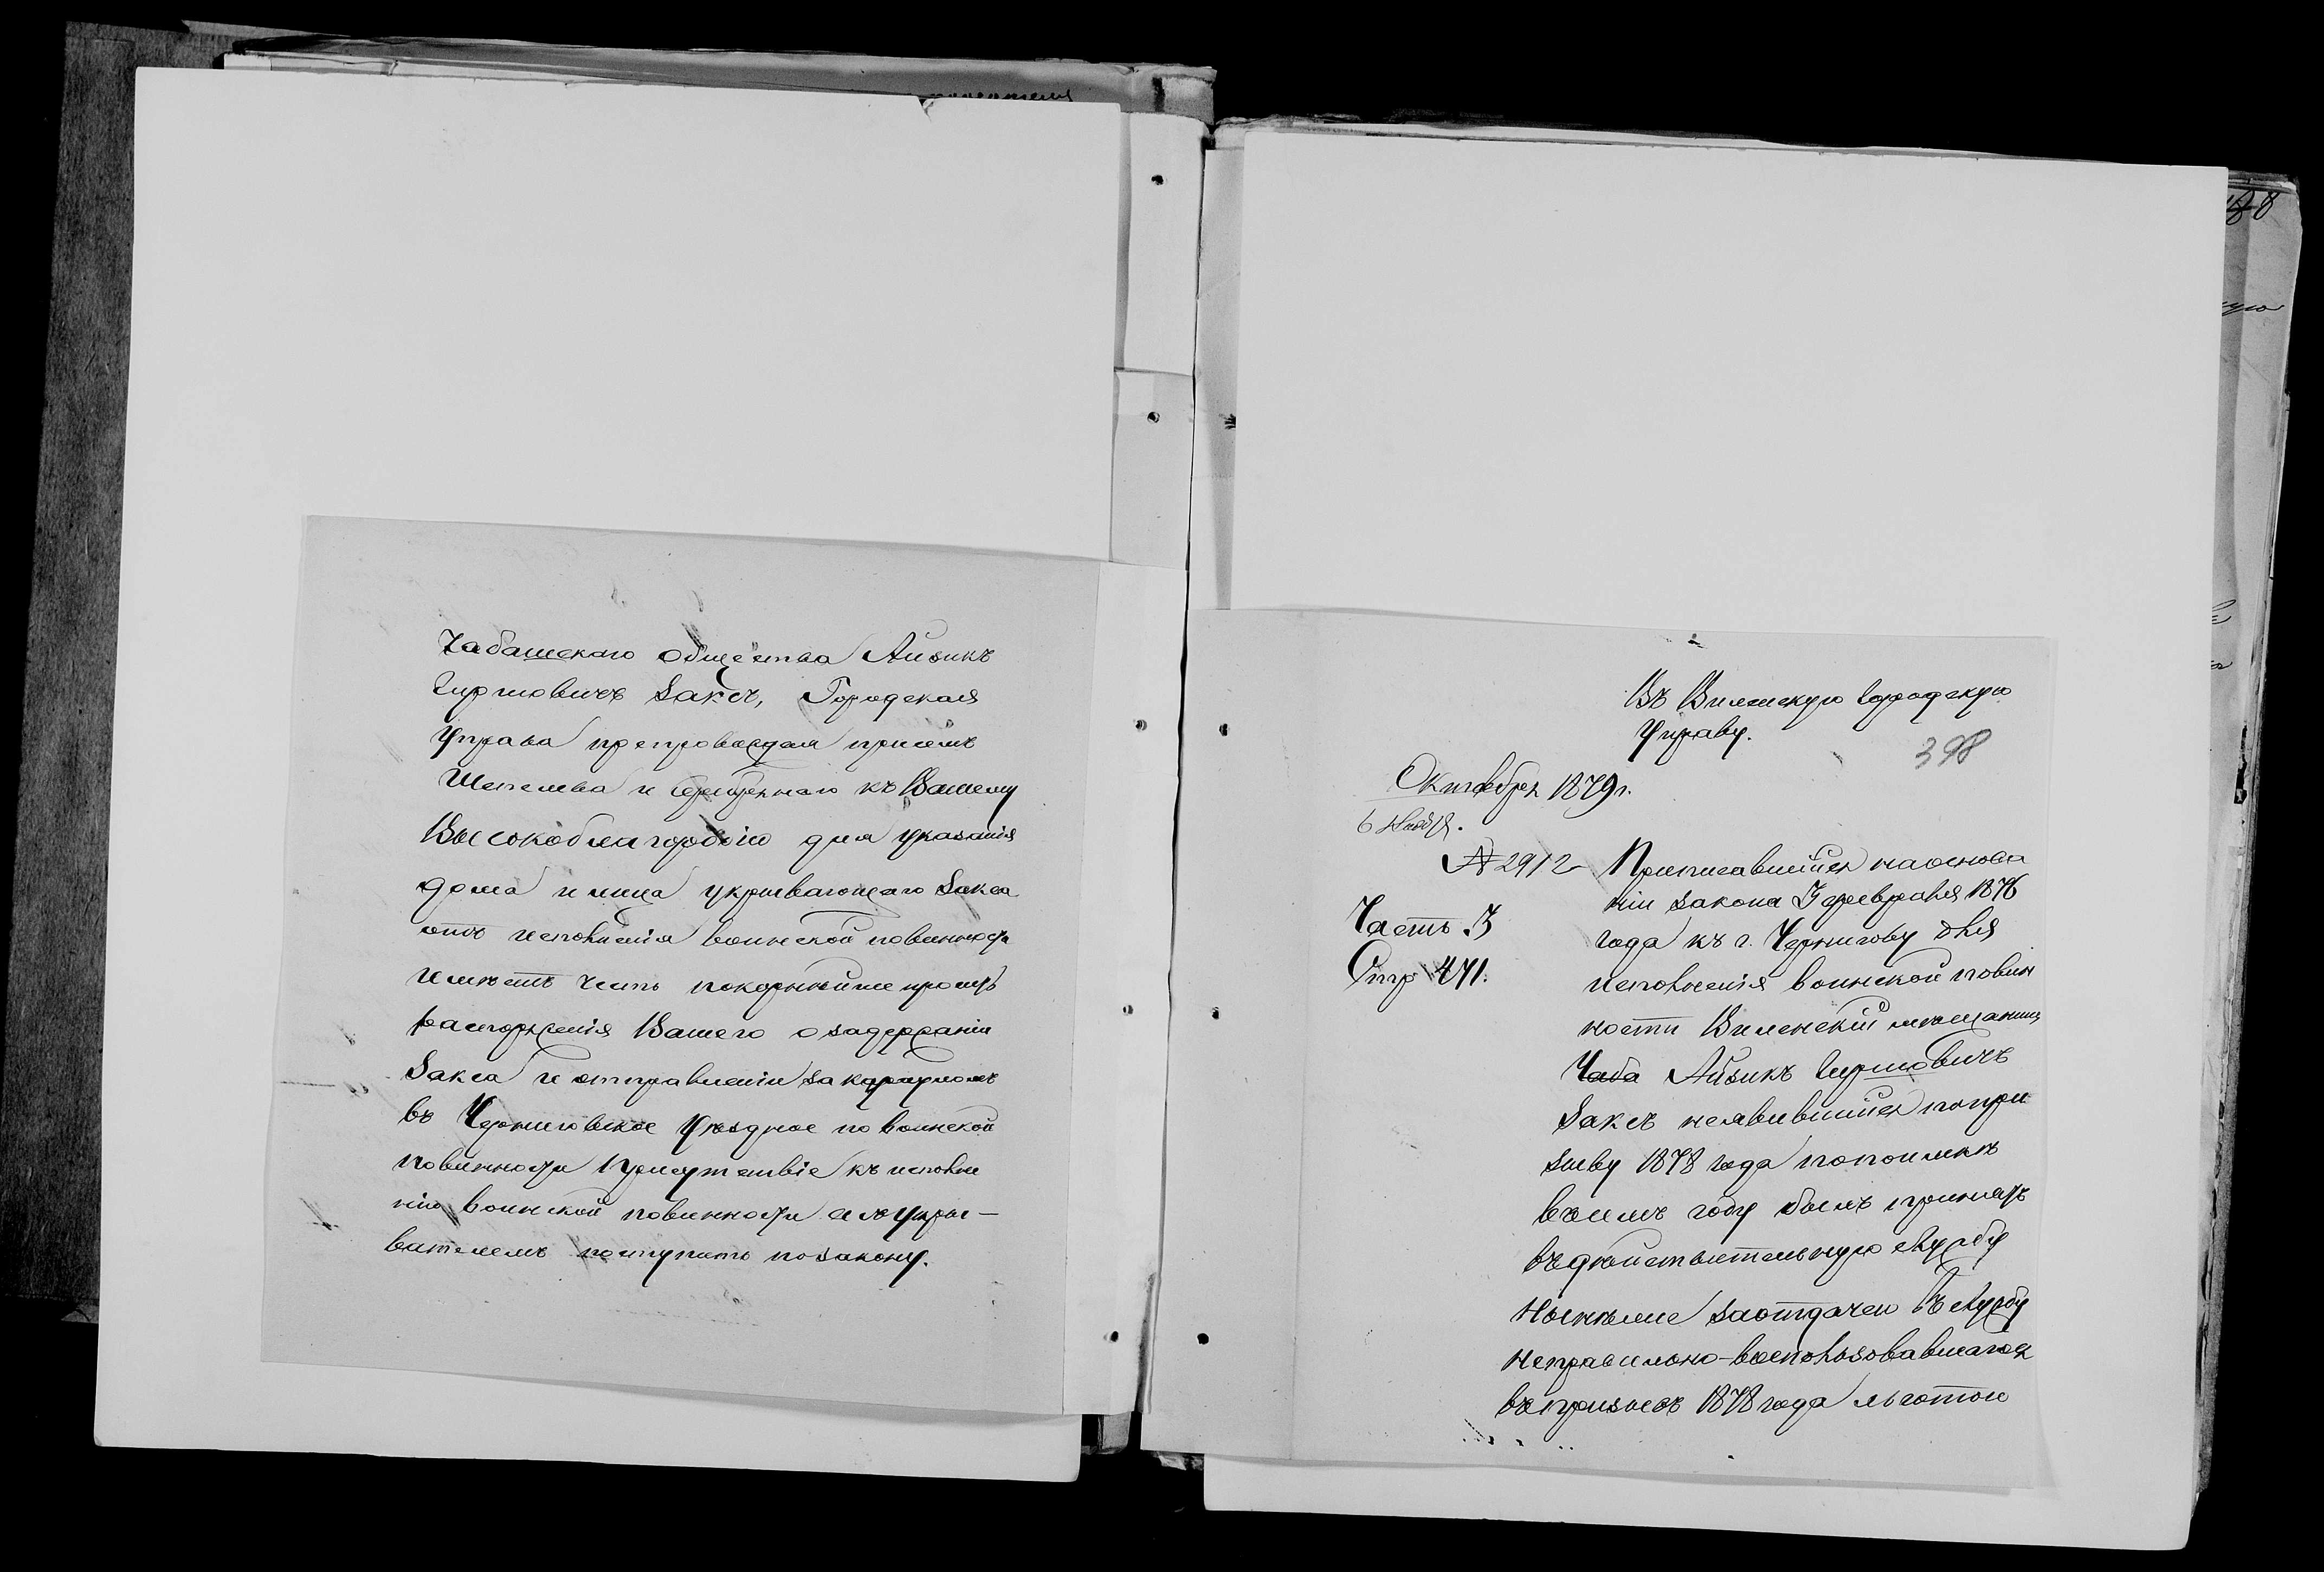 Чабашскаго общества Айзикъ
Гиршовичъ Заксъ, Городская
Управа препровождая при семъ
Шепелева и Серебреннаго къ Вашему
Высокоблагородію для указанія
дома и лица укрывающаго Закса
отъ исполненія воинской повинности
имѣетъ честь покорнѣйше просить
распоряженія Вашего о задержаніи
Закса и отправленіи за карауломъ
въ Черниговское Уѣздное по воинской
повинности Присутствіе къ исполне
нію воинской повинности а съ укры-
вателемъ поступить по закону.
Въ Виленскую Городскую
Управу.
398
Октября 1879 г.
6 Ноября.
№ 2912
Часть 3
Стр 471.
Приписавшійся на основа
ніи закона 3 февраля 1876
года къ г. Чернигову для
исполненія воинской повин
ности Виленскій мѣщанинъ
Чаба Айзикъ Гиршовичъ
Заксъ неявившійся по при
зыву 1878 года по поимкѣ
въ семъ году былъ принятъ
въ дѣйствительную службу
Нынѣ же за отдачей въ службу
неправильно-воспользовавшагося
въ призывъ 1878 года льготою
188